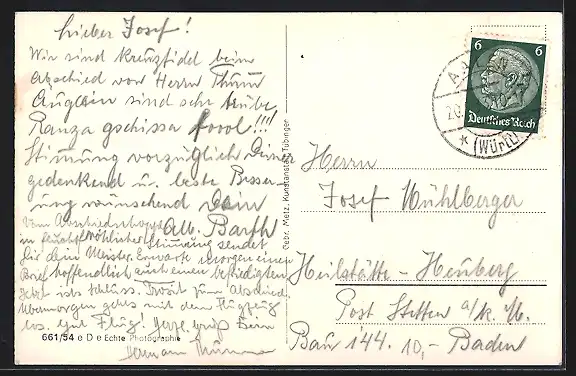 Lieber Josef!
Wir sind kreuzfidel beim
Abschied von Herrn Thumm
Äuglein sind sehr trübe,
Ranza gschissa fool!!!
Stimung vorzüglich Deiner
gedenkend u. beste Besser-
ung wünschend Dein
Alb. Barth
Vom Abschiedschoppen
in feuchtfröhlicher Stimung sendet
Dir dein Meister. Erwarte morgen einen
Brief hoffendlich auch einen befriedigten
Jetzt ists schluss. Prosit zum Abschied.
Übermorgen gehts mit dem Flugzeug
los. Gut Flug! Herzl. Gruß Dein
Hermann Thumm
661/54 e D e Echte Photographie
Gebr. Metz, Kunstanstalt, Tübingen
6 6
Deutsches Reich
20
(Württ)
Herrn
Josef Mühlberger
Heilstätte - Heuberg
Post Stetten a/k. M.
Bau 144. 10,- Baden